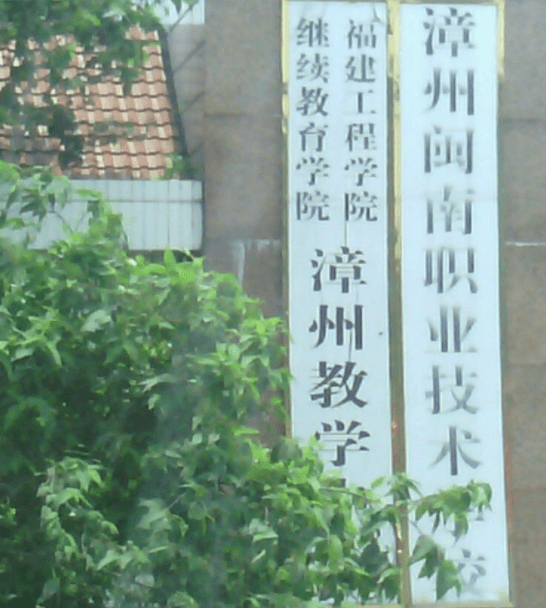 漳州闽南职业技术学校
福建工程学院
继续教育学院
漳州教学